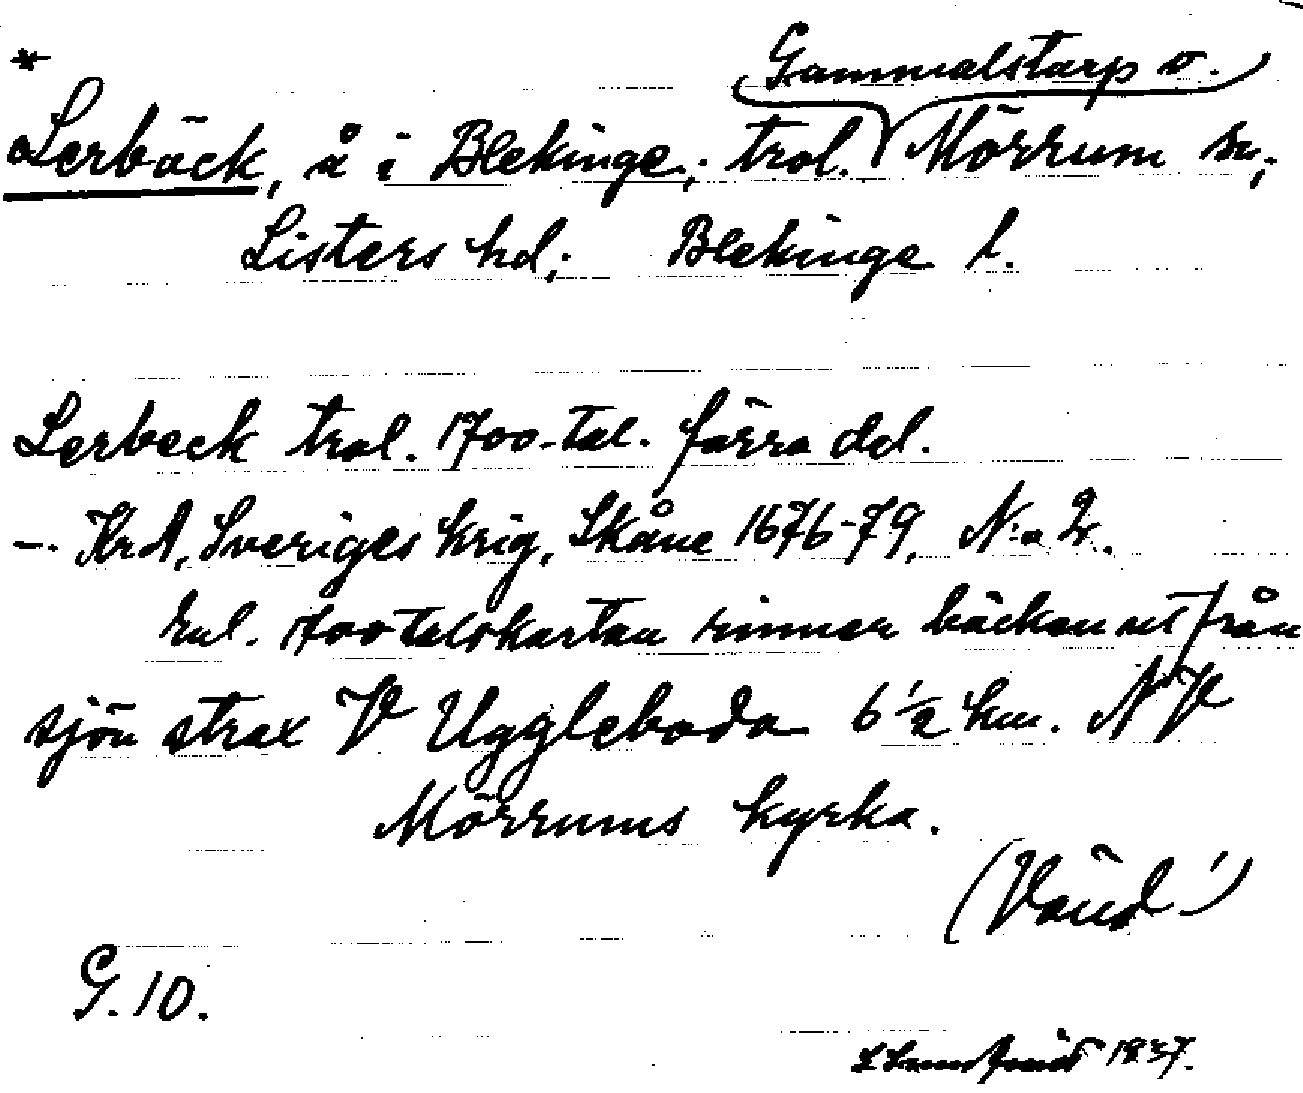 *
Gammalstorp o.
Lerbäck, å i Blekinge; trol. Mörrum sn;
Listers hd; Blekinge l.
Lerbeck trol. 1700-tal. förra del.
–. KrA, Sveriges krig, Skåne 1676-79, N:o 2.
Enl. 1700talskartan rinner bäcken ut från
sjön strax V Uggleboda 6 1/2 km. NV
Mörrums kyrka.
(Vänd!)
G. 10.
1937.